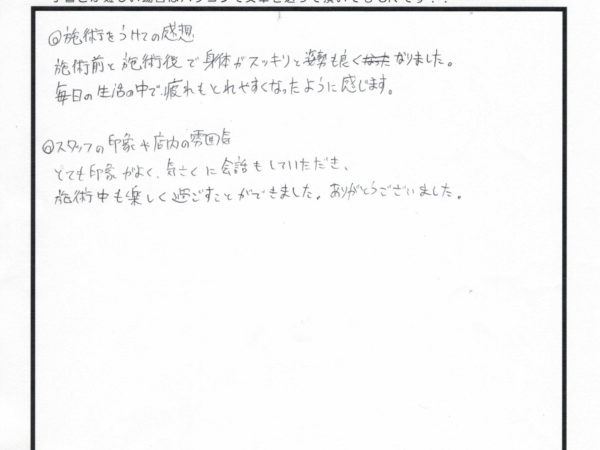 ◎施術をうけての感想
施術前と施術後で身体がスッキリと姿勢も良くなりました。
毎日の生活の中で疲れもとれやすくなったように感じます。
◎スタッフの印象や店内の雰囲気
とても印象がよく、気さくに会話もしていただき、
施術中も楽しく過ごすことができました。ありがとうございました。